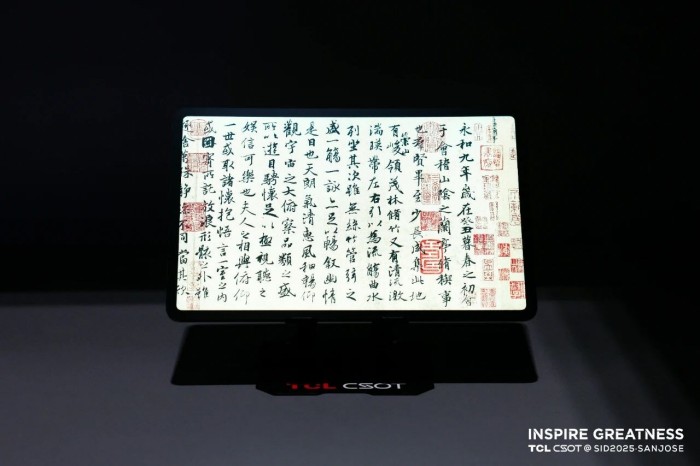 永和九年歲在癸丑暮春之初會
于會稽山陰之蘭亭脩稧事
也羣賢畢至少長咸集此地
有崇山峻領茂林脩竹又有清流激
湍暎帶左右引以為流觴曲水
列坐其次雖無絲竹管弦之
盛一觴一詠亦足以暢敘幽情
是日也天朗氣清惠風和暢仰
觀宇宙之大俯察品類之盛
所以遊目騁懷足以極視聽之
娛信可樂也夫人之相與俯仰
一世或取諸懷抱悟言一室之內
或因寄所託放浪形骸之外雖
舍萬殊靜躁不同當其欣
TCL CSOT
INSPIRE GREATNESS
TCL CSOT @ SID2025·SANJOSE